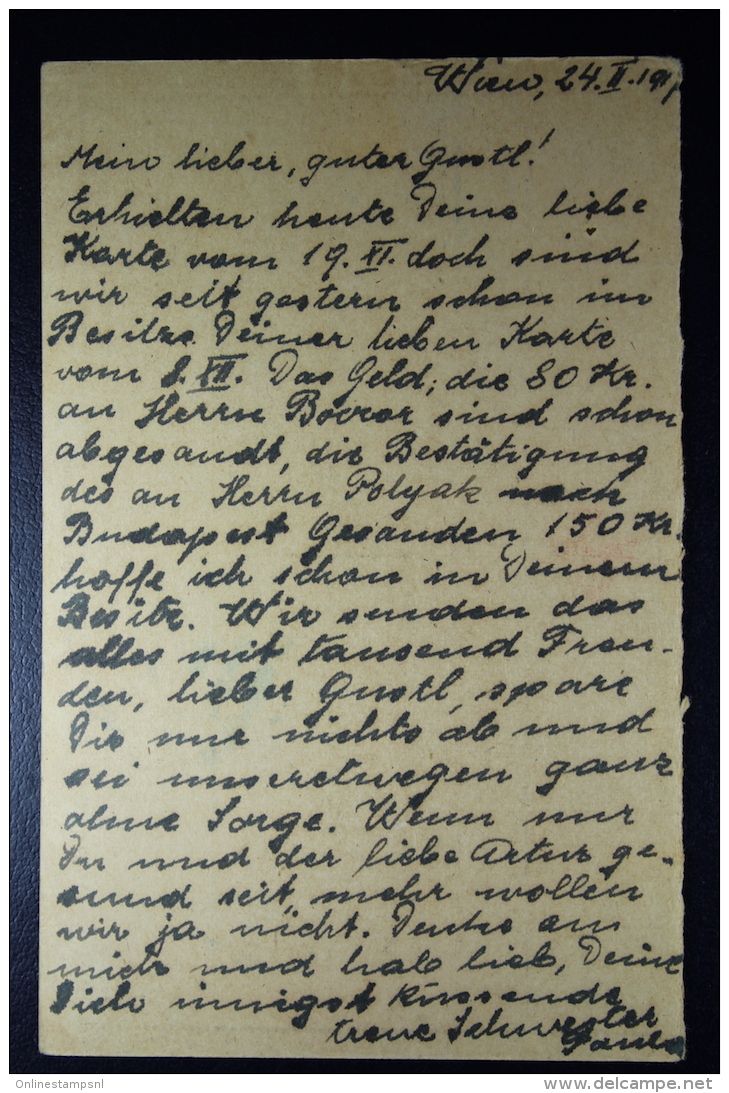 Wien, 24. II. 191
Mein lieber, guter Gustl!
Erhielten heute Deine liebe
Karte vom 19. XI. doch sind
wir seit gestern schon im
Besitze Deiner lieben Karte
vom 8. XII. Das Geld; die 80 Kr.
an Herrn sind schon
abgesandt, die Bestätigung
des an Herrn Polyak nach
Budapest Gesanden 150 Kr.
hoffe ich schon in Deinem
Besitz. Wir senden das
alles mit tausend Freu-
den, lieber Gustl, spare
Dir nur nichts ab und
sei unseretwegen ganz
ohne Sorge. Wenn nur
Du und der liebe Artur ge-
sund seit, mehr wollen
wir ja nicht. Denke an
mich und hab lieb, Deine
Dich innigst küssende
treue Schwester
Paula
Onlinestampsnl
www.delcampe.net